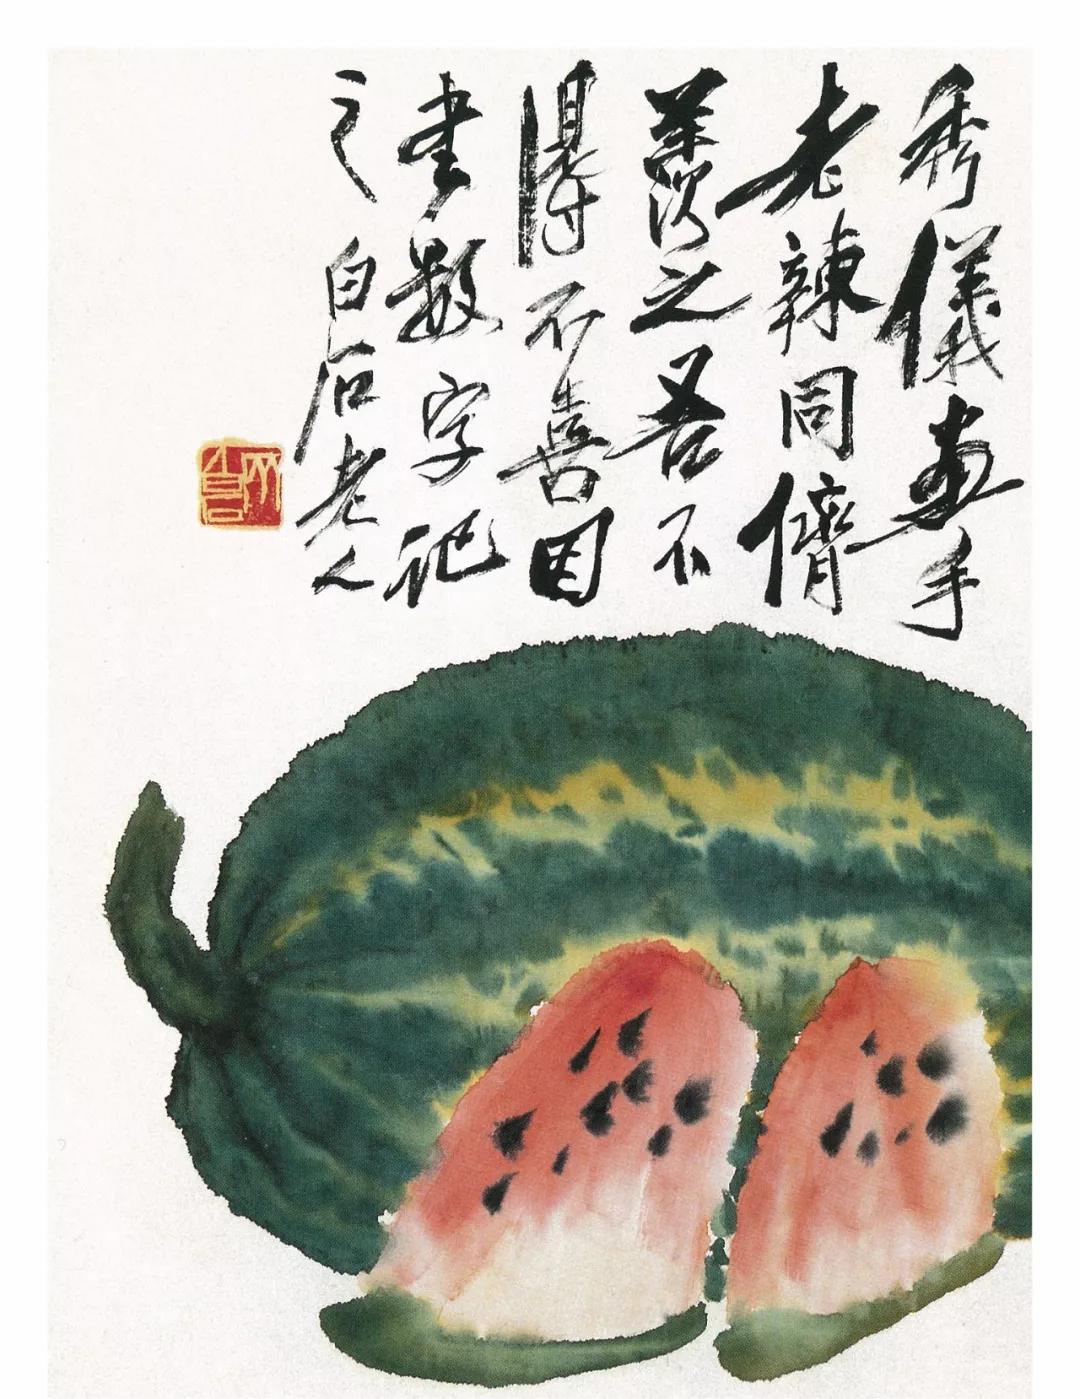 秀儀畫手
老辣同儕
羨之吾不
得不喜因
書數字記
之 白石老人